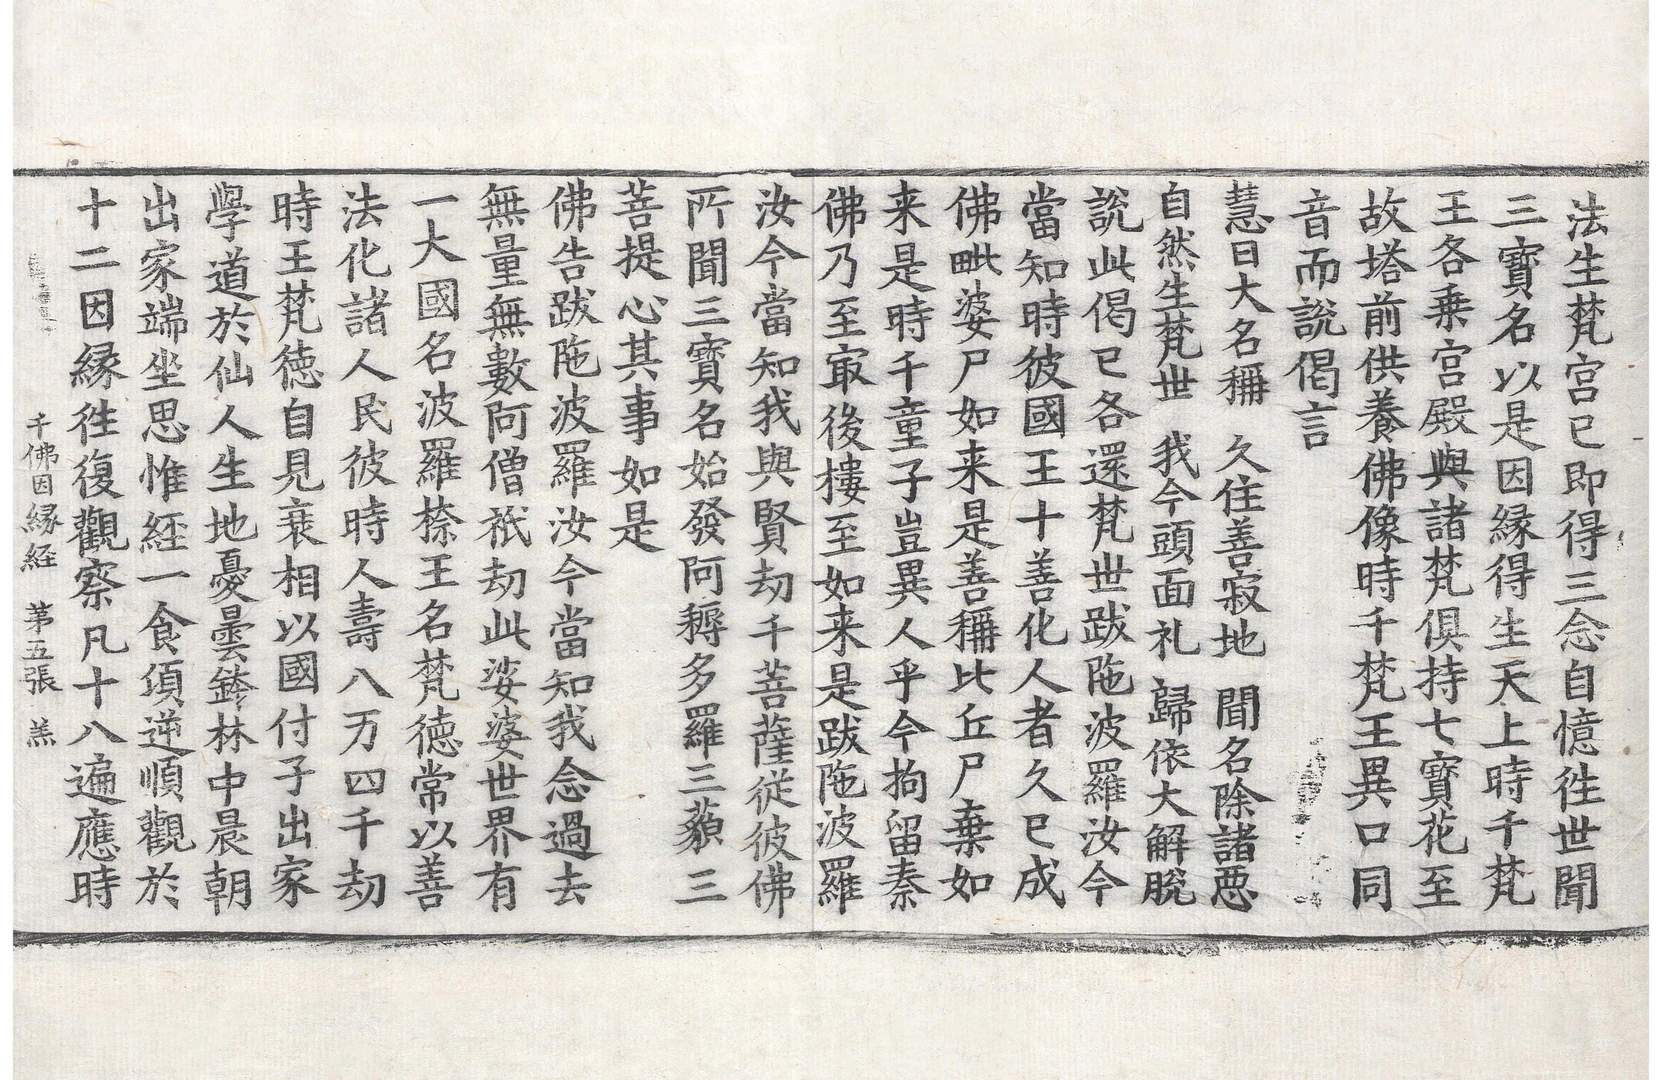 法生梵宫已即得三念自憶徃世聞
三寶名以是因縁得生天上時千梵
王各乗宫殿與諸梵俱持七寶花至
故塔前供養佛像時千梵王異口同
音而說偈言
慧日大名稱　久住善寂地　聞名除諸惡
自然生梵世　我今頭面礼　歸依大解脫
說此偈已各還梵世跋陁波羅汝今
當知時彼國王十善化人者久已成
佛毗婆尸如来是善稱比丘尸棄如
来是時千童子豈異人乎今拘留秦
佛乃至㝡後樓至如来是跋陁波羅
汝今當知我與賢劫千菩薩從彼佛
所聞三寶名始發阿耨多羅三藐三
菩提心其事如是
佛告跋陁波羅汝今當知我念過去
無量無數阿僧祇劫此娑婆世界有
一大國名波羅㮈王名梵徳常以善
法化諸人民彼時人壽八万四千劫
時王梵徳自見衰相以國付子出家
學道於仙人生地憂曇鉢林中晨朝
出家端坐思惟經一食頃逆順觀於
十二因縁徃復觀察凡十八遍應時
千佛因縁経　第五張　羔